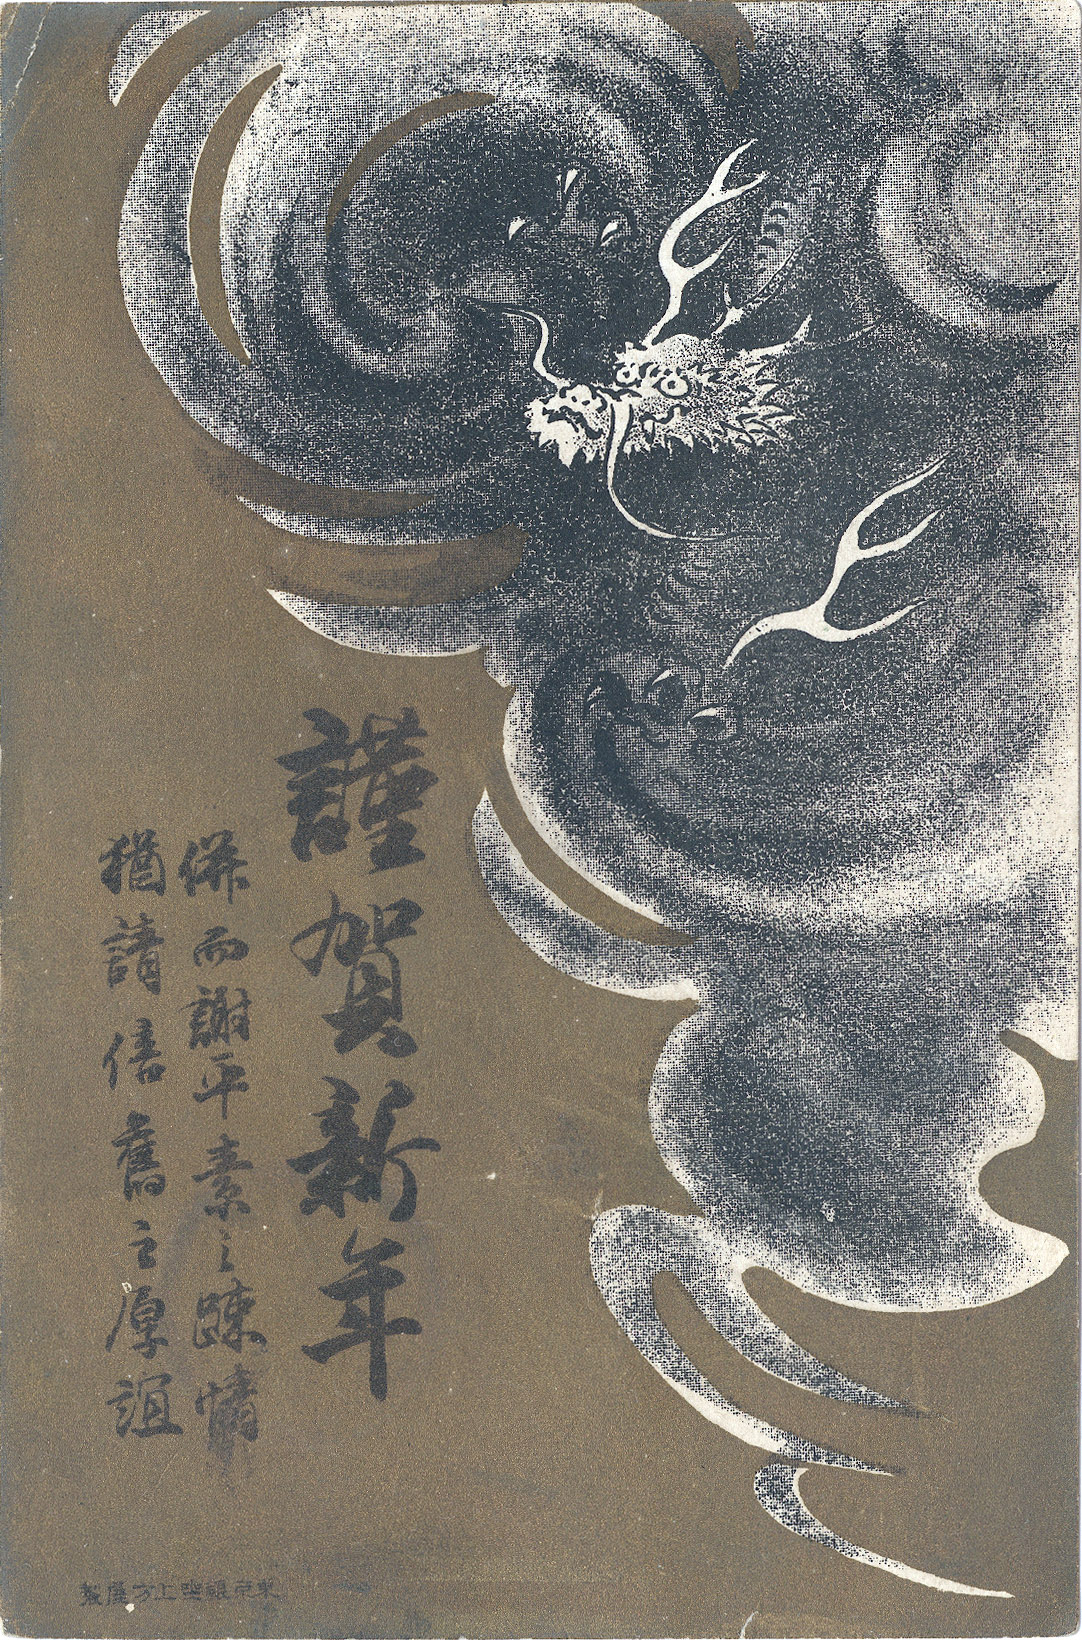 謹賀新年
併而謝平素之踈慵
猶請倍舊之厚誼
東京銀座上方屋製